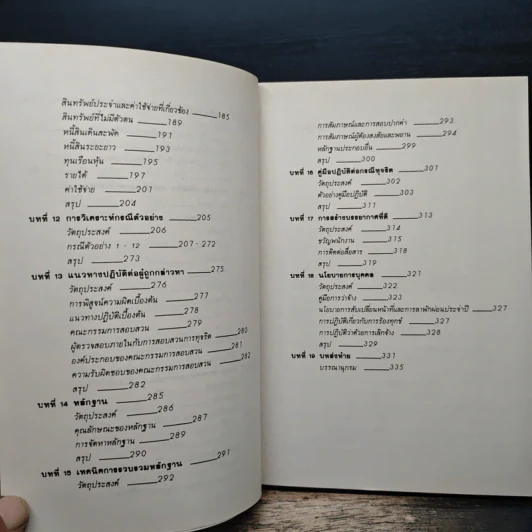 สินทรัพย์ประจำและค่าใช้จ่ายที่เกี่ยวข้อง 185
สินทรัพย์ที่ไม่มีตัวตน 189
หนี้สินเดินสะพัด 191
หนี้สินระยะยาว 193
ทุนเรือนหุ้น 195
รายได้ 197
ค่าใช้จ่าย 201
สรุป 204
บทที่ 12 การวิเคราะห์กรณีตัวอย่าง 205
วัตถุประสงค์ 206
กรณีตัวอย่าง 1 - 12 207-272
สรุป 273
บทที่ 13 แนวทางปฏิบัติต่อผู้ถูกกล่าวหา 275
วัตถุประสงค์ 276
การพิสูจน์ความผิดเบื้องต้น 277
แนวทางปฏิบัติเบื้องต้น 278
คณะกรรมการสอบสวน 279
ผู้ตรวจสอบภายในกับการสอบสวนการทุจริต 280
องค์ประกอบของคณะกรรมการสอบสวน 281
ความรับผิดชอบของคณะกรรมการสอบสวน 282
สรุป 282
บทที่ 14 หลักฐาน 285
วัตถุประสงค์ 286
คุณลักษณะของหลักฐาน 287
การจัดหาหลักฐาน 289
สรุป 290
บทที่ 15 เทคนิคการรวบรวมหลักฐาน 291
วัตถุประสงค์ 292
การสัมภาษณ์และการสอบปากคำ 293
การสัมภาษณ์ผู้ต้องสงสัยและพยาน 294
หลักฐานประกอบอื่น 299
สรุป 300
บทที่ 16 คู่มือปฏิบัติต่อกรณีทุจริต 301
วัตถุประสงค์ 302
ตัวอย่างคู่มือปฏิบัติ 303
สรุป 311
บทที่ 17 การสร้างบรรยากาศที่ดี 313
วัตถุประสงค์ 314
ขวัญพนักงาน 315
การติดต่อสื่อสาร 318
สรุป 319
บทที่ 18 นโยบายการบุคคล 321
วัตถุประสงค์ 322
คู่มือการว่าจ้าง 323
นโยบายการสับเปลี่ยนหน้าที่และการลาพักผ่อนประจำปี 327
การปฏิบัติเกี่ยวกับการร้องทุกข์ 327
การปฏิบัติว่าด้วยการเลิกจ้าง 328
สรุป 329
บทที่ 19 บทส่งท้าย 331
บรรณานุกรม 335